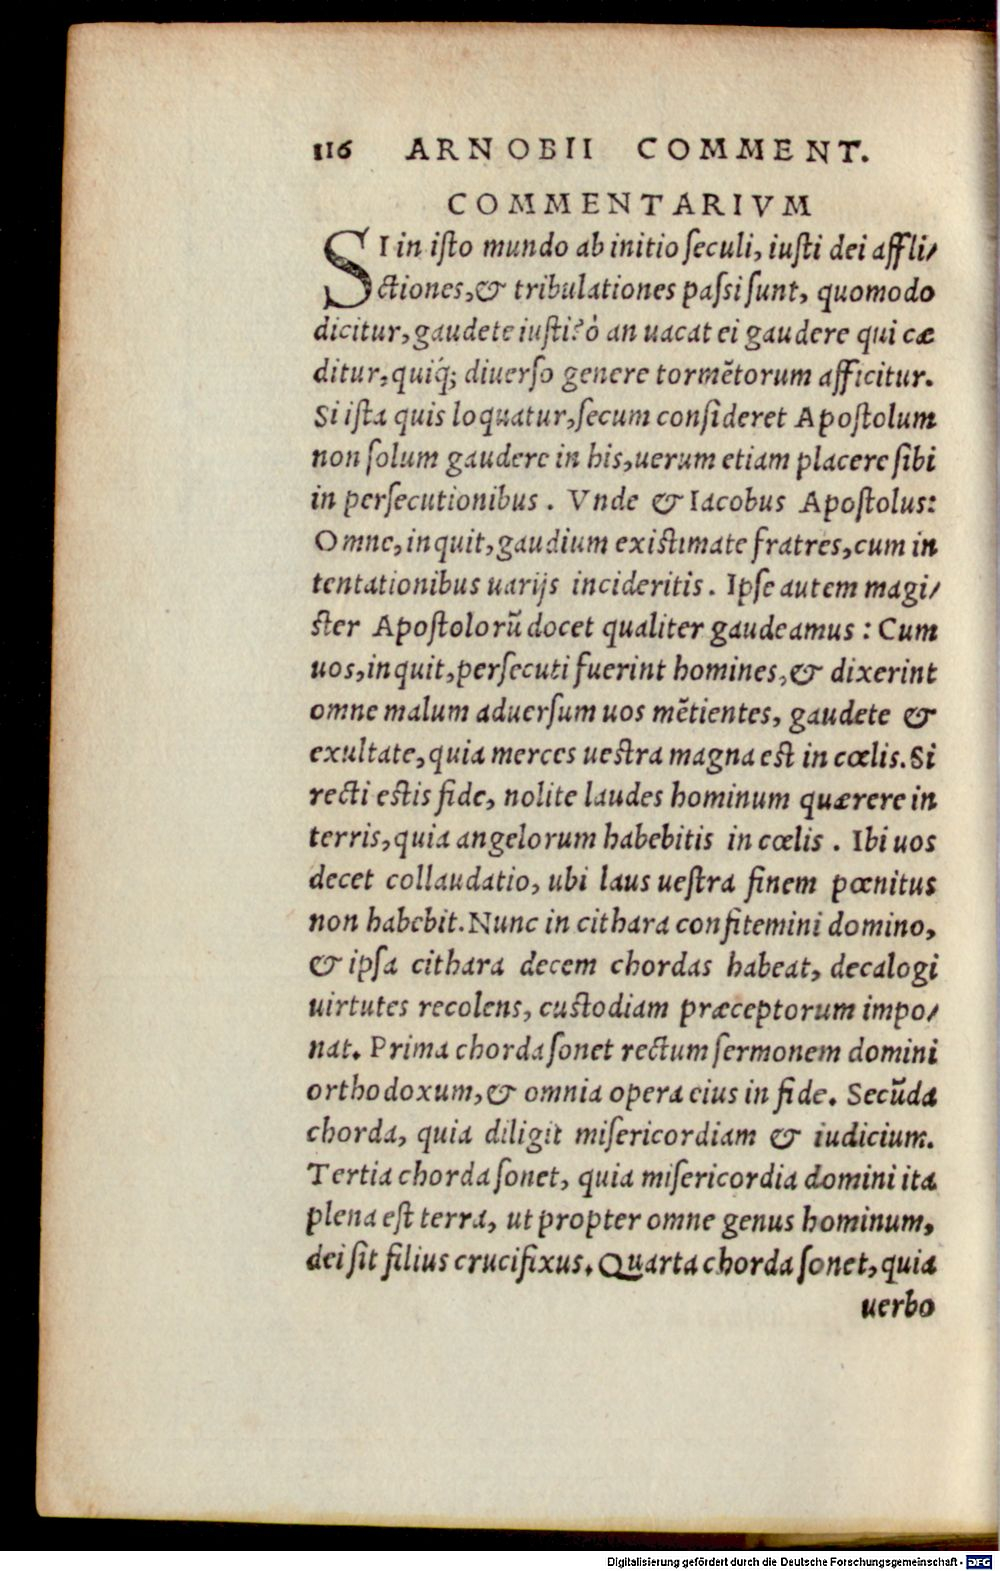 116 ARNOBII COMMENT.
COMMENTARIVM
SI in iſto mundo ab initio ſeculi, iuſti dei affli/
ctiones, & tribulationes paſsi ſunt, quomodo
dicitur, gaudete iuſti? ò an uacat ei gaudere qui cæ
ditur, quiq́; diuerſo genere tormẽtorum afficitur.
Si iſta quis loquatur, ſecum conſideret Apoſtolum
non ſolum gaudere in his, uerum etiam placere ſibi
in perſecutionibus. Vnde & Iacobus Apoſtolus:
Omne, inquit, gaudium existimate fratres, cum in
tentationibus uarijs incideritis. Ipſe autem magi/
ster Apoſtolorũ docet qualiter gaudeamus: Cum
uos, inquit, perſecuti fuerint homines, & dixerint
omne malum aduerſum uos mẽtientes, gaudete &
exultate, quia merces uestra magna est in cœlis. Si
recti estis fide, nolite laudes hominum quærere in
terris, quia angelorum habebitis in cœlis. Ibi uos
decet collaudatio, ubi laus ueſtra finem pœnitus
non habebit. Nunc in cithara confitemini domino,
& ipſa cithara decem chordas habeat, decalogi
uirtutes recolens, custodiam præceptorum impo/
nat. Prima chorda ſonet rectum ſermonem domini
orthodoxum, & omnia opera eius in fide. Secũda
chorda, quia diligit miſericordiam & iudicium.
Tertia chorda ſonet, quia miſericordia domini ita
plena eſt terra, ut propter omne genus hominum,
dei ſit filius crucifixus. Quarta chorda ſonet, quia
uerbo
Digitalisierung gefördert durch die Deutsche Forschungsgemeinschaft - DFG